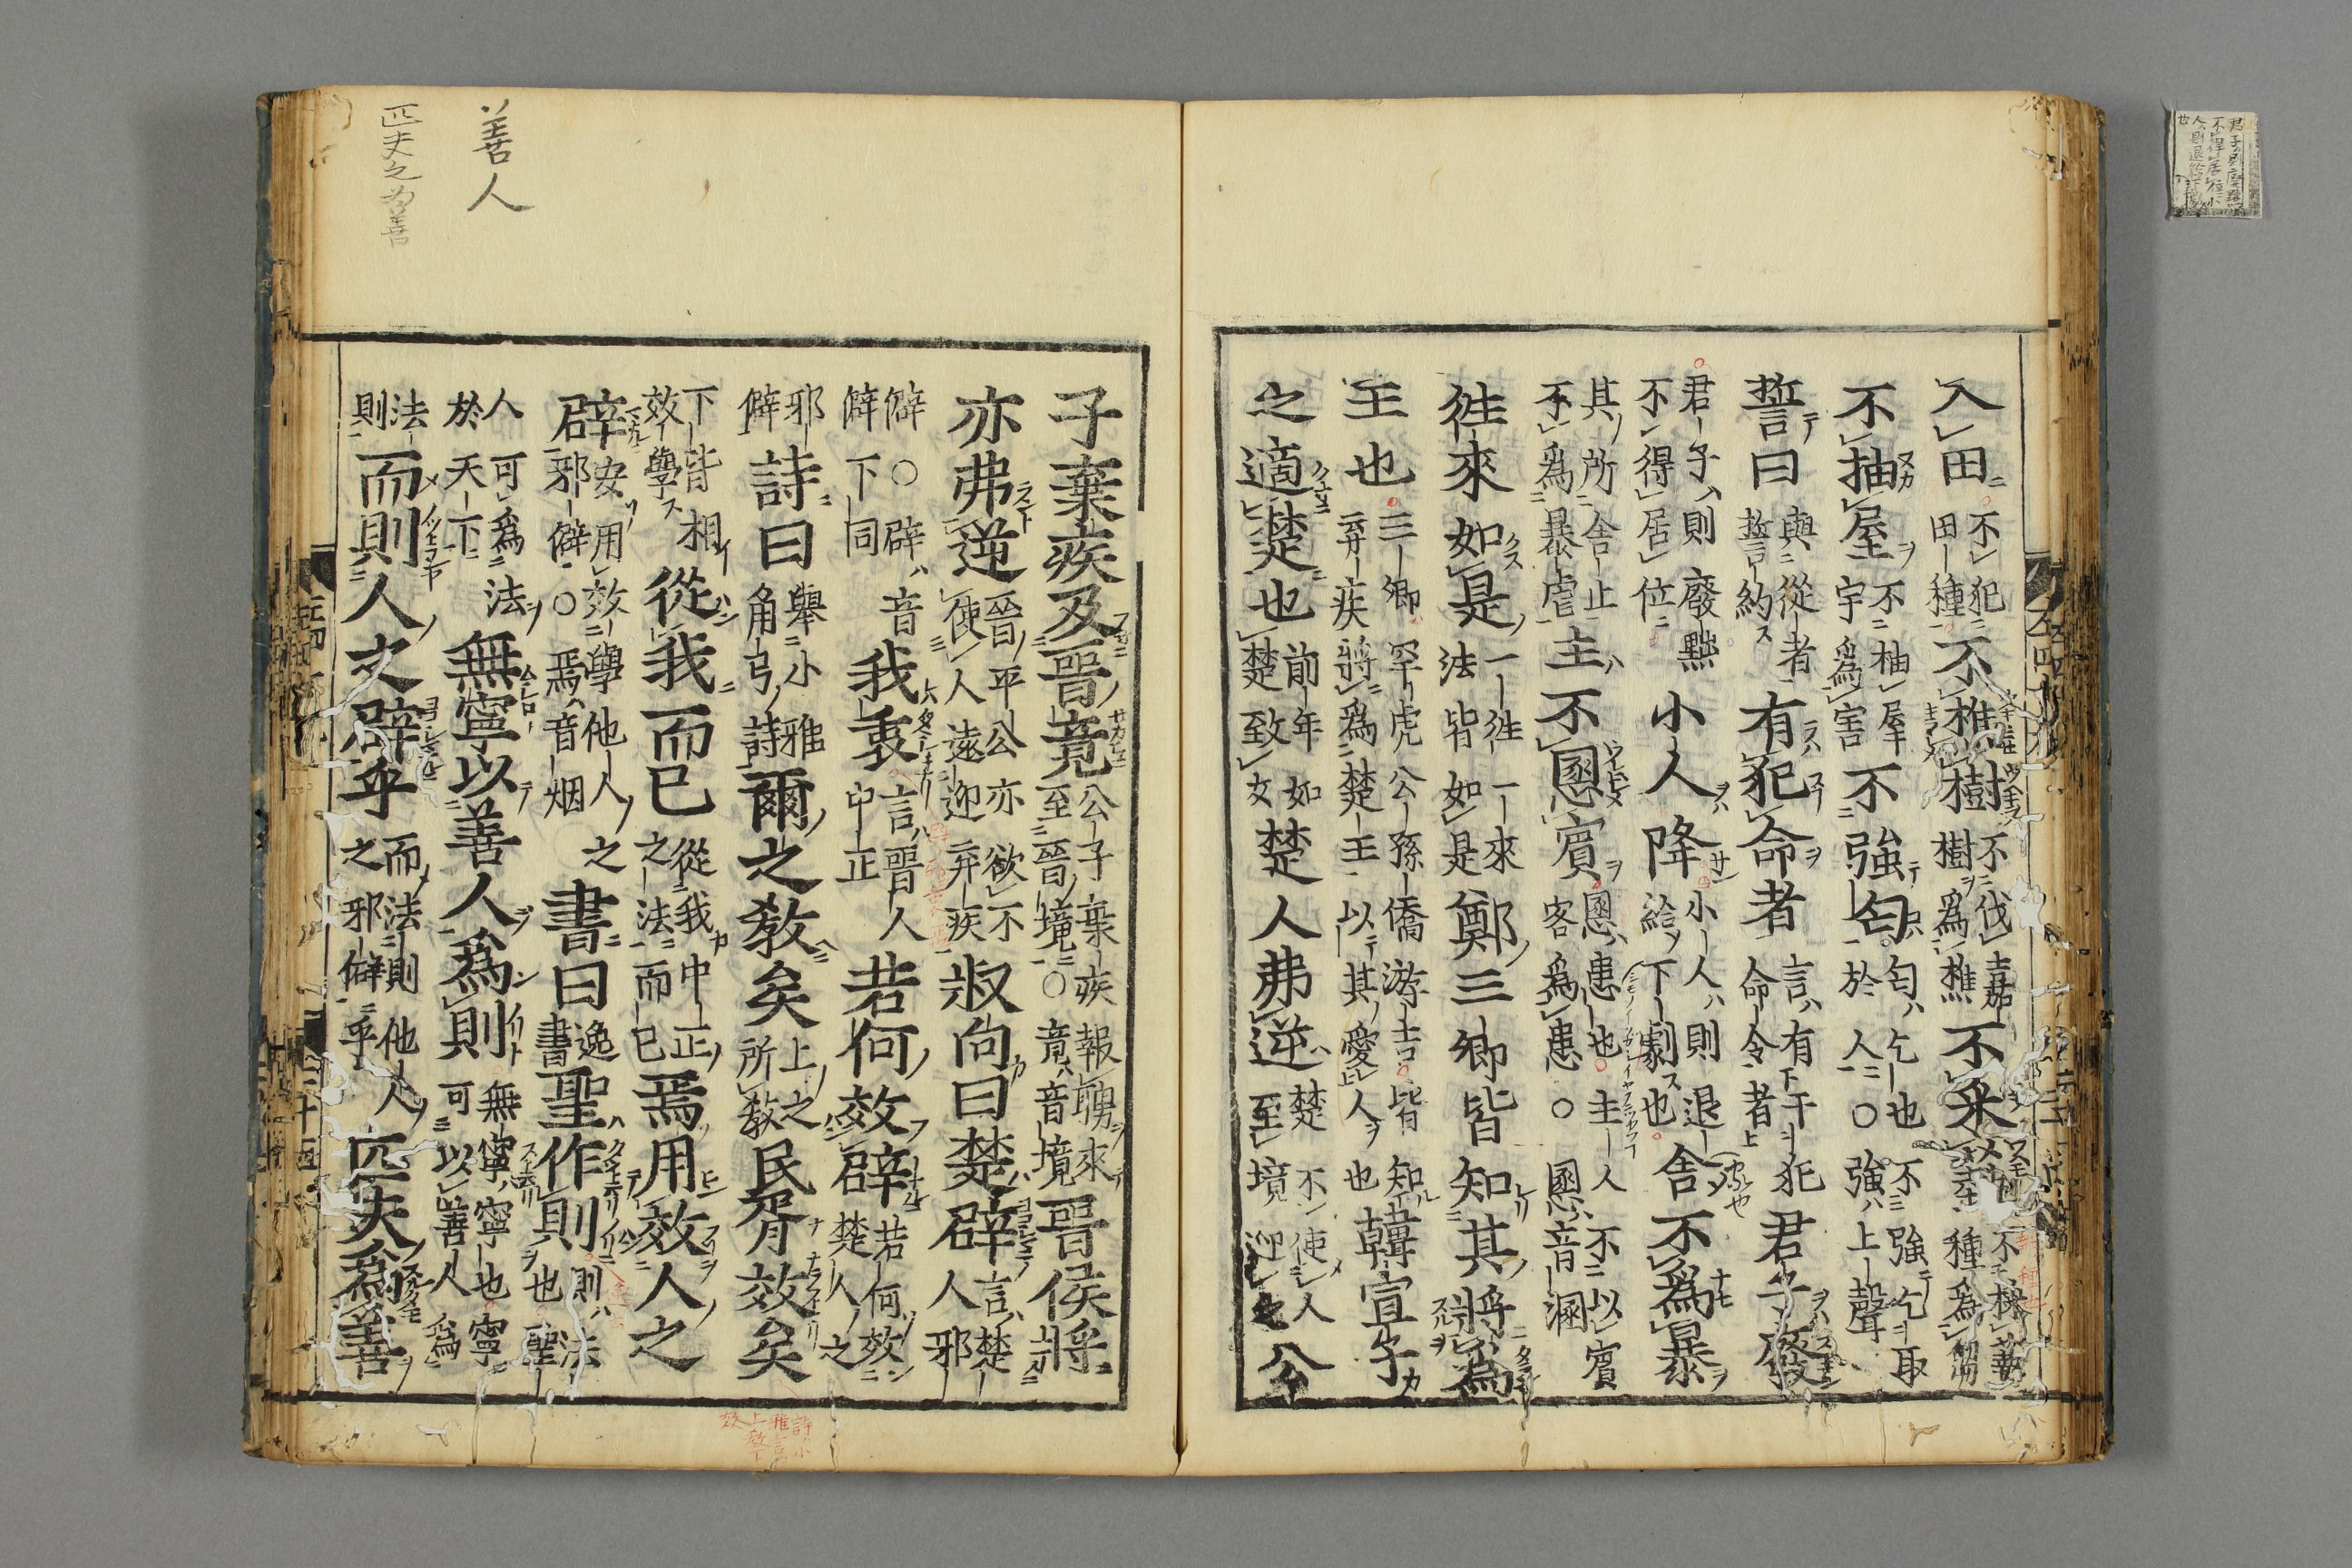 入田不犯田種不樵樹不伐樹爲樵不采蓺不種爲蒭
不抽屋不抽屋宇爲害不強匄匄乞也不強乞取於人○強上聲
誓曰與從者誓言約有犯命者言有干犯命令者君子廢
君子則廢黜不得居位小人降小人則退給下劇也舍不爲暴
其所舍止不爲暴虐主不慁賓慁患也主人不以賓客爲患○慁音溷
徃來如是一徃一來法皆如是鄭三卿皆知其將爲
王也三卿罕虎公孫僑游吉皆知弃疾將爲楚王以其愛人也韓宣子
之適楚也前年如楚致女楚人弗逆楚不使人至境迎之公
子棄疾及晉竟公子棄疾報聘來至晉境○竟音境晉侯將
亦弗逆晉平公亦欲不使人遠迎弃疾叔向曰楚辟言楚人邪
僻○辟音僻下同我衷言晉人中正若何效辟若何效楚人之
邪僻詩曰舉小雅角弓詩爾之教矣上之所教民胥效矣
下皆相效學從我而已從我中正之法而已焉用效人之
辟安用效學他人之邪僻○焉音烟書曰逸書聖作則則法也聖
人可爲法於天下無寧以善人爲則無寧寧也寧可以善人爲
法則而則人之辟乎而法則他人之邪僻乎匹夫爲善
善人
匹夫之為善